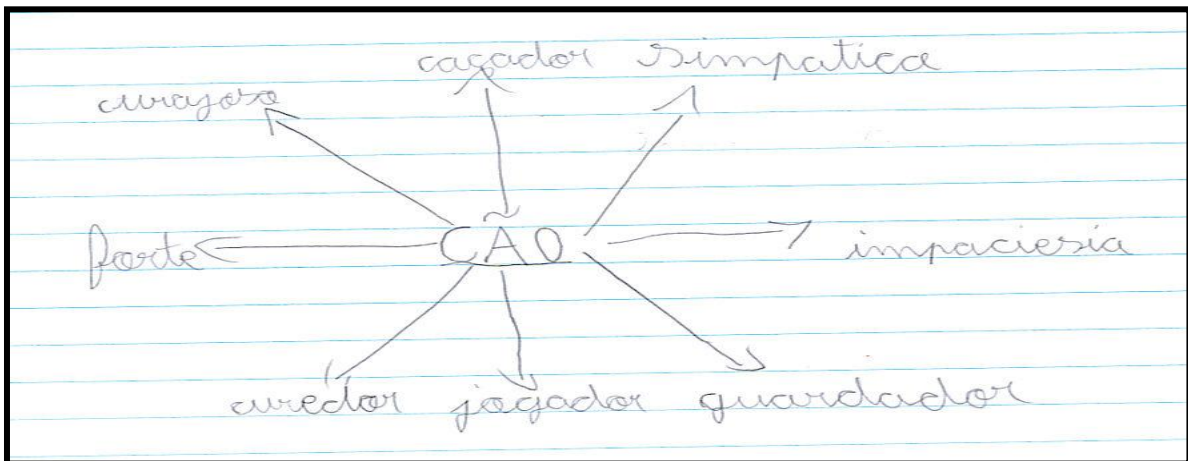 caçador simpatica
curajoso
forte CÃO impaciesia
curedor jogador guardador